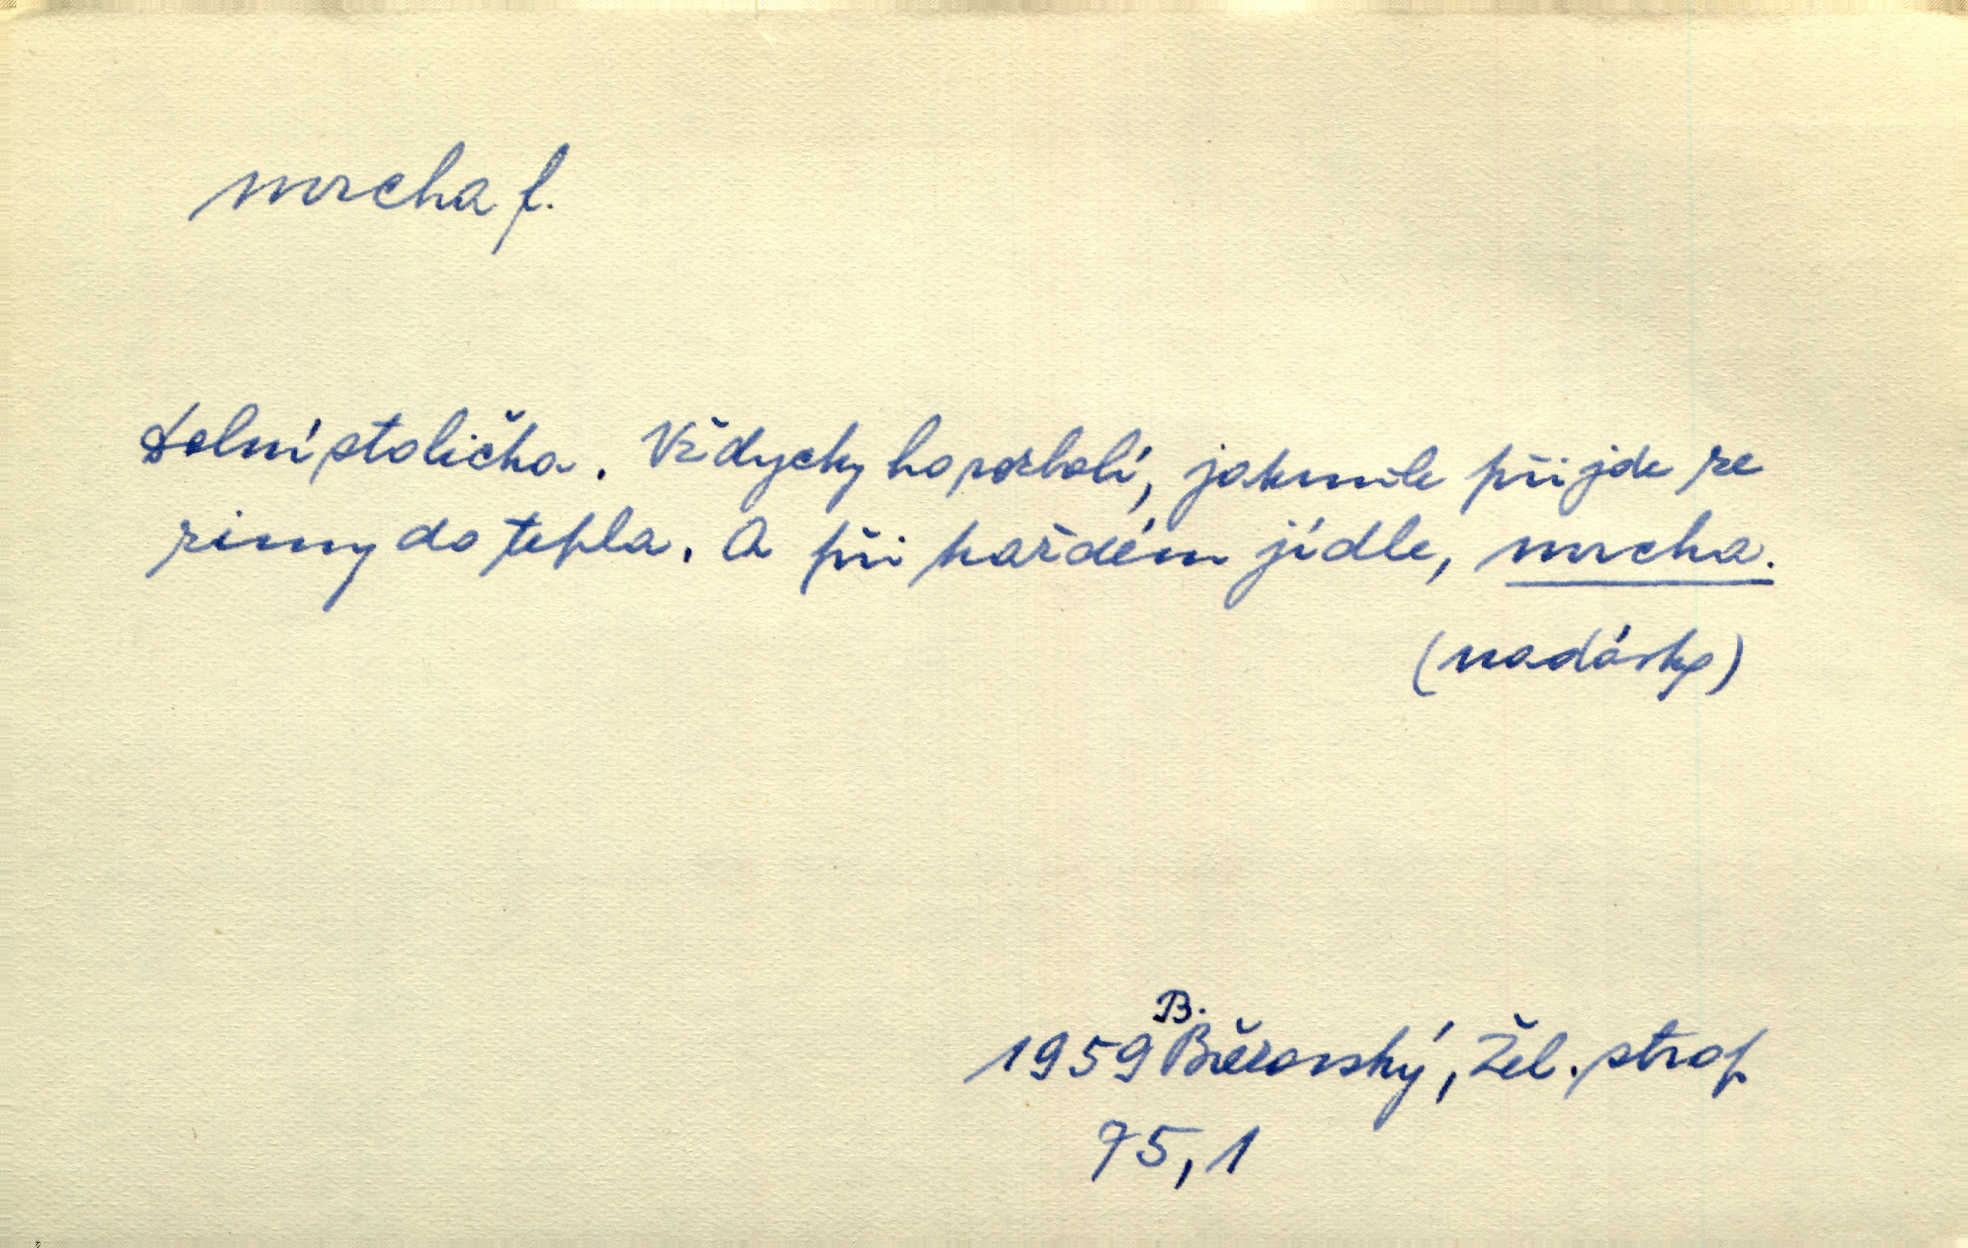 mrcha f.
Dolní stolička. Vždycky ho rozbolí, jakmile přijde ze
zimy do tepla. A při každém jídle, mrcha.
(nadávky)
B.
1959 Březovský, Žel. strop
75,1